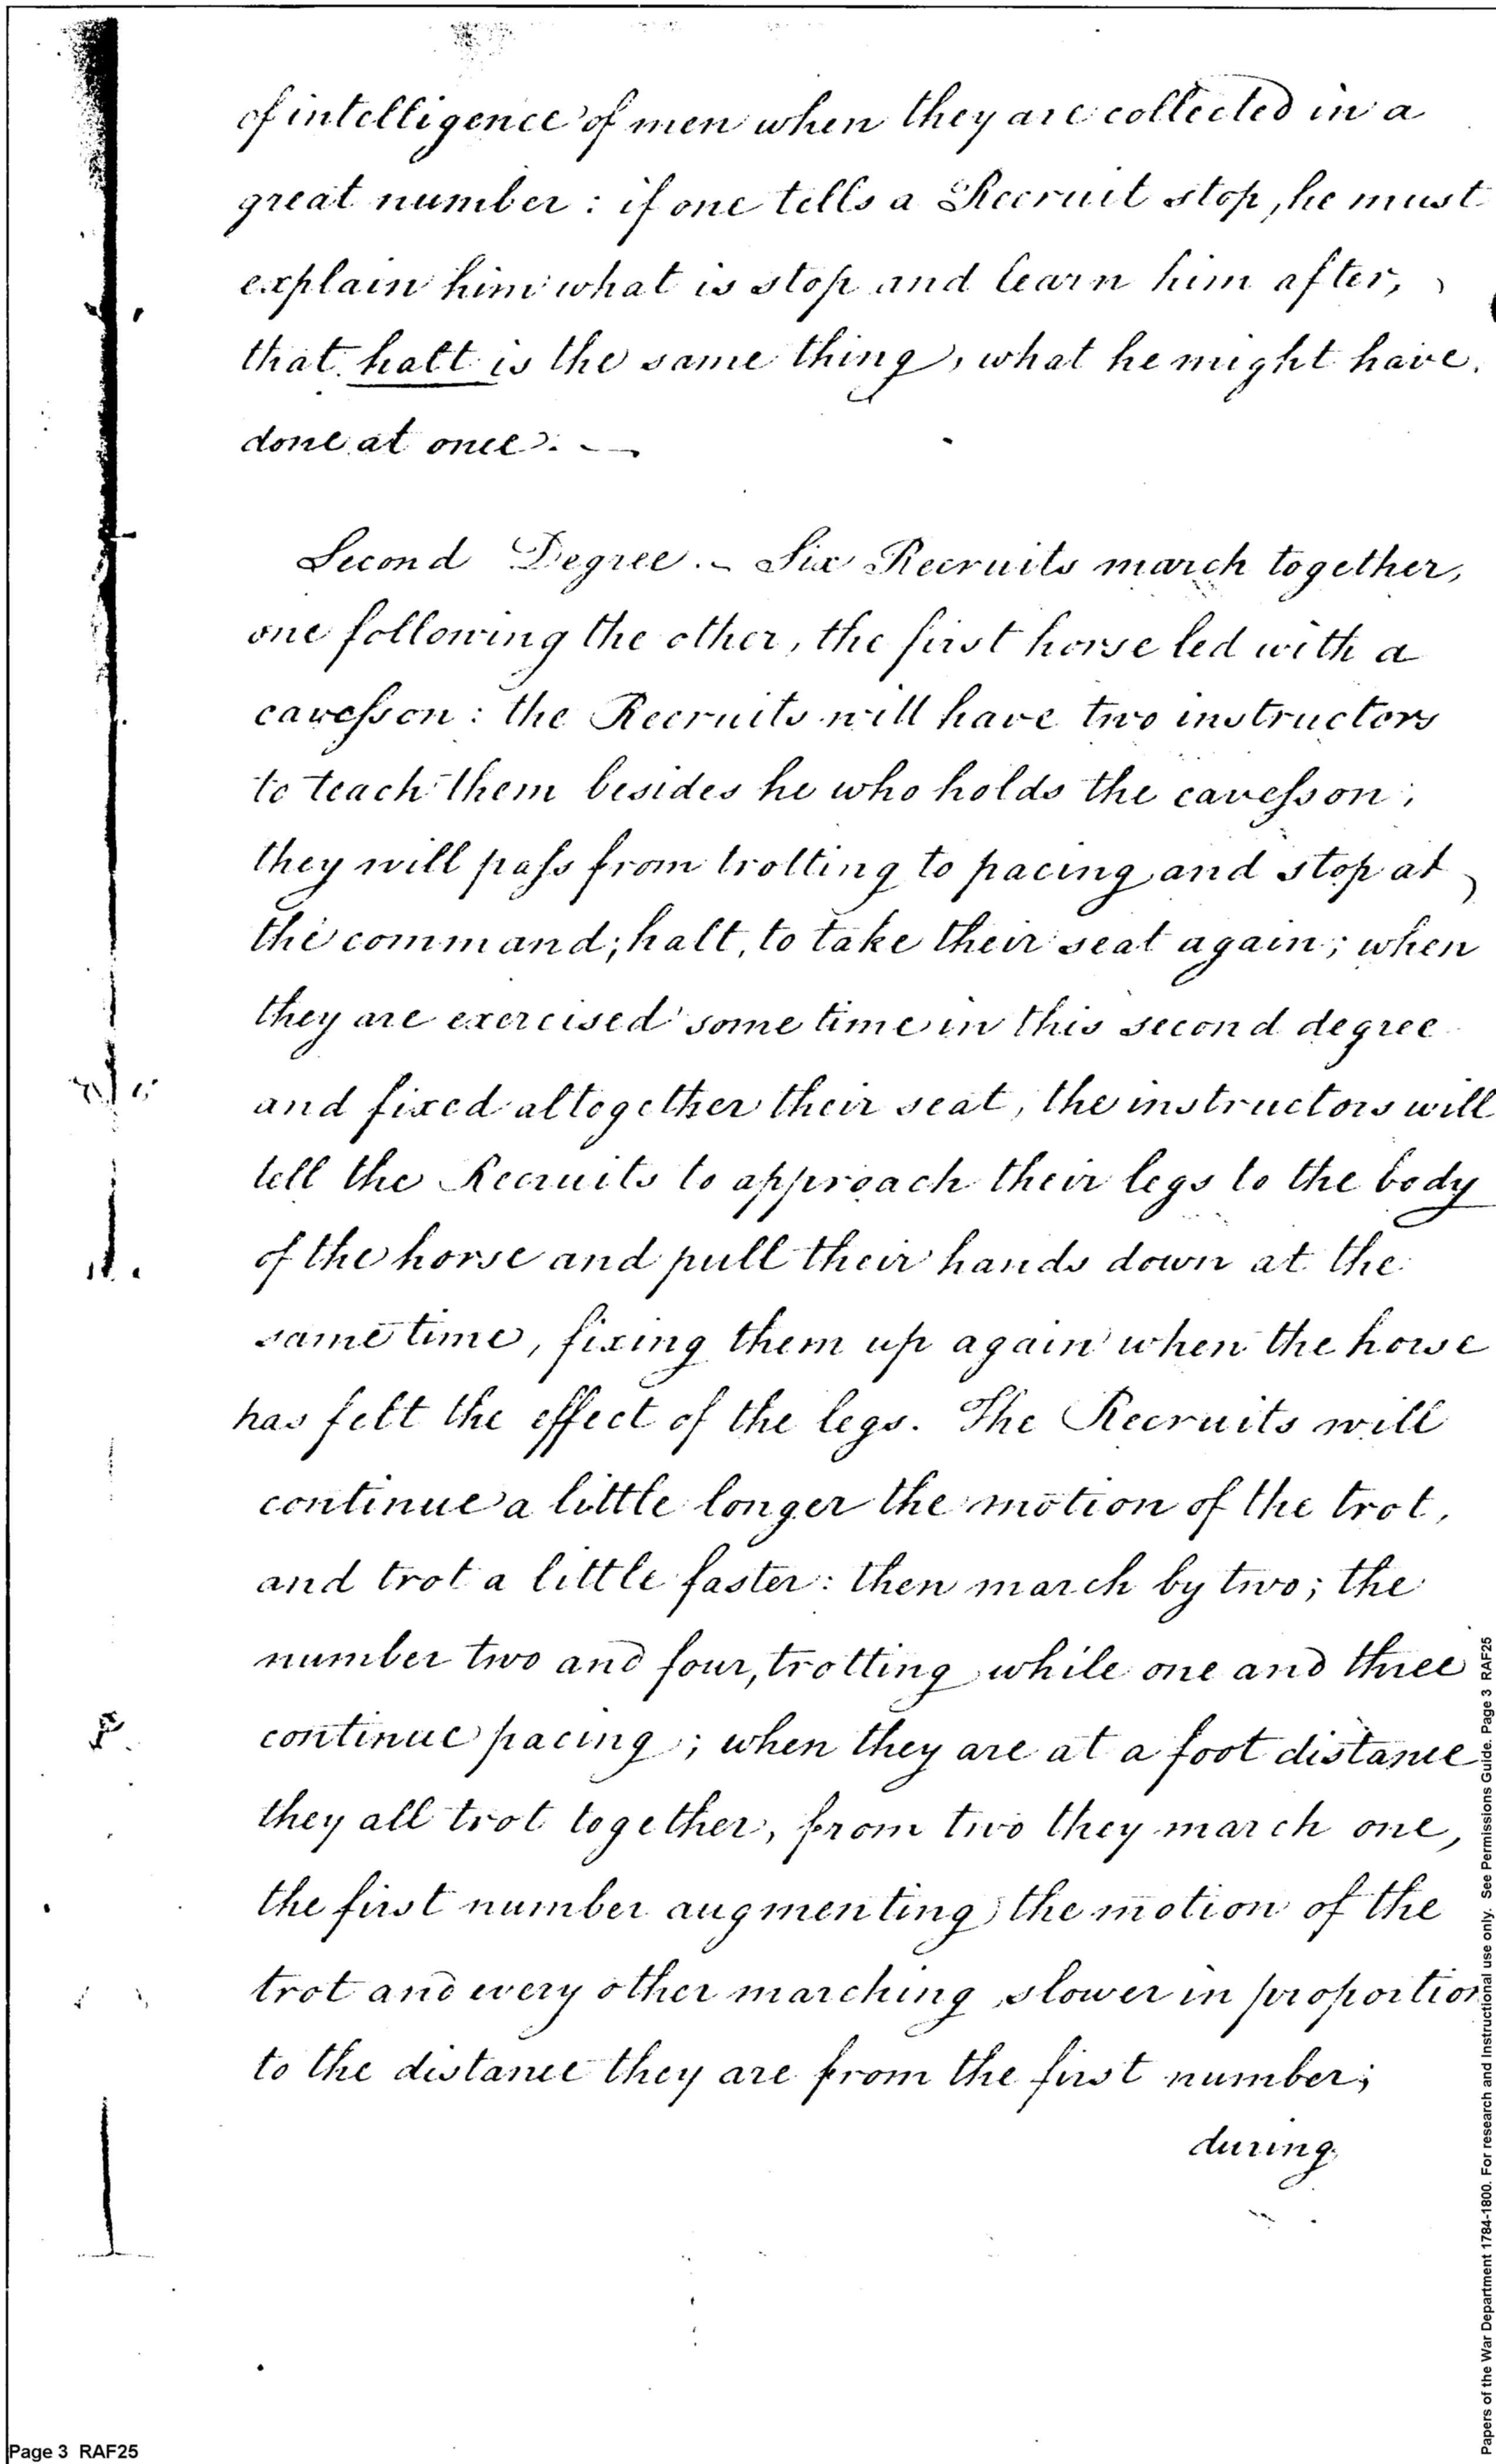 of intelligence of men when they are collected in a
great number : if one tells a Recruit stop, he must
explain him what is stop and learn him after,
that halt is the same thing, what he might have
done at once. —
Second Degree. - Six Recruits march together,
one following the other, the first horse led with a
cavesson : the Recruits will have two instructors
to teach them besides he who holds the cavesson;
they will pass from trotting to pacing and stop at
the command; halt, to take their seat again; when
they are exercised some time in this second degree
and fixed altogether their seat, the instructors will
tell the Recruits to approach their legs to the body
of the horse and pull their hands down at the
same time, fixing them up again when the horse
has felt the effect of the legs. The Recruits will
continue a little longer the motion of the trot,
and trot a little faster: then march by two; the
number two and four, trotting while one and three
continue pacing; when they are at a foot distance
they all trot together, from two they march one,
the first number augmenting the motion of the
trot and every other marching slower in proportion
to the distance they are from the first number;
during
Page 3 RAF25
Papers of the War Department 1784-1800. For research and Instructional use only. See Permissions Guide. Page 3 RAF25